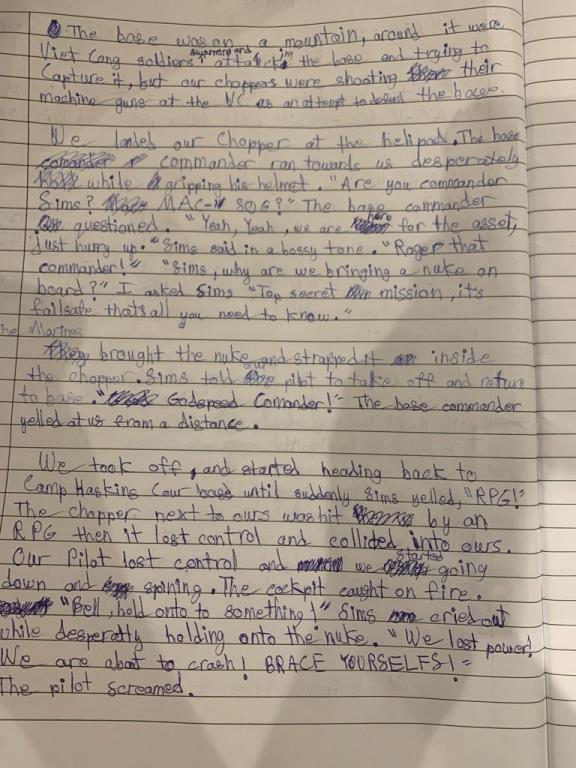 The base was on a mountain, around it were
Viet Cong soldiers surrounding and attacking the base and trying to
Capture it, but our choppers were shooting their
machine guns at the VC as an attempt to defend the base.
We landed our Chopper at the helipads. The base
commander ran towards us desperately
while gripping his helmet. "Are you commander
Sims? MAC-V SOG?" The base commander
questioned. "Yeah, Yeah, we are here for the asset,
just hurry up." Sims said in a bossy tone. "Roger that
commander!" "Sims, why are we bringing a nuke on
board?" I asked Sims "Top secret mission, it's
failsafe thats all you need to know."
The Marines
brought the nuke and strapped it inside
the chopper. Sims told pilot to take off and return
to base. "Godspeed Comander!" The base commander
yelled at us from a distance.
We took off, and started heading back to
Camp Haskins (our base) until suddenly Sims yelled, "RPG!"
The chopper next to ours was hit by an
RPG then it lost control and collided into ours.
Our Pilot lost control and we started going
down and spining. The cockpit caught on fire.
"Bell, hold onto to something!" Sims cried out
while desperatly holding onto the nuke. "We lost power!
We are about to crash! BRACE YOURSELFS!"
The pilot screamed.